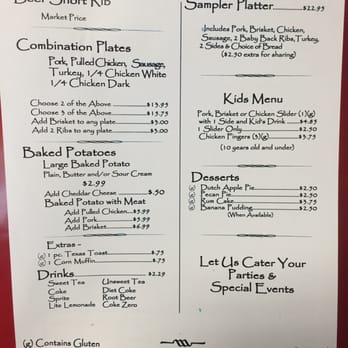 Beef Short Rib
Market Price
Combination Plates
Pork, Pulled Chicken, Sausage,
Turkey, 1/4 Chicken White
1/4 Chicken Dark
Choose 2 of the Above $13.95
Choose 3 of the Above $15.75
Add Brisket to any plate $3.00
Add 2 Ribs to any plate $3.00
Baked Potatoes
Large Baked Potato
Plain, Butter and/or Sour Cream
$2.99
Add Cheddar Cheese $.50
Baked Potato with Meat
Add Pulled Chicken $5.99
Add Pork $5.99
Add Brisket $6.99
Extras -
(g) 1 pc. Texas Toast $.75
(g) 1 Corn Muffin $.75
Drinks $2.29
Sweet Tea Unsweet Tea
Coke Diet Coke
Sprite Root Beer
Lite Lemonade Coke Zero
(g) Contains Gluten
Sampler Platter $22.95
Includes Pork, Brisket, Chicken,
Sausage, 2 Baby Back Ribs, Turkey,
2 Sides & Choice of Bread
($2.50 extra for sharing)
Kids Menu
Pork, Brisket or Chicken Slider (1)(g)
with 1 Side and Kid's Drink $4.85
1 Slider Only $2.50
Chicken Fingers (3)(g) $3.75
(10 years old and under)
Desserts
(g) Dutch Apple Pie $2.50
(g) Pecan Pie $2.50
(g) Rum Cake $3.75
(g) Banana Pudding $2.50
(When Available)
Let Us Cater Your
Parties &
Special Events